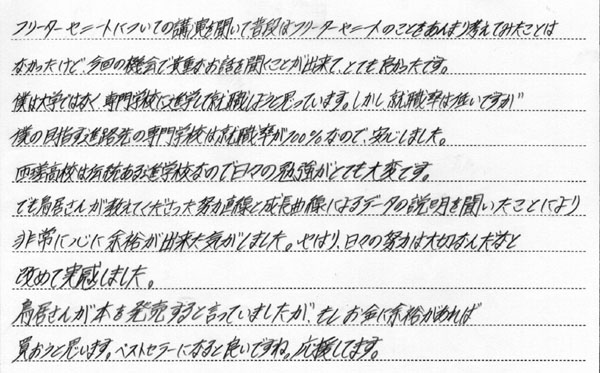 フリーターやニートについての講演を聞いて普段はフリーターやニートのことをあんまり考えてみたことは
なかったけど、今回の機会で貴重なお話を聞くことが出来て、とても良かったです。
僕は大学ではなく専門学校に進学して就職しようと思っています。しかし就職率は低いですが
僕の目指す進路先の専門学校は就職率が100%なので、安心しました。
西葛高校は伝統ある進学校なので日々の勉強がとても大変です。
でも鳥居さんが教えてくださった努力直線と成長曲線によるデータの説明を聞いたことにより
非常に心に余裕が出来た気がしました。やはり、日々の努力は大切なんだなと
改めて実感しました。
鳥居さんが本を発売すると言っていましたが、もしお金に余裕があれば
買おうと思います。ベストセラーになると良いですね。応援してます。